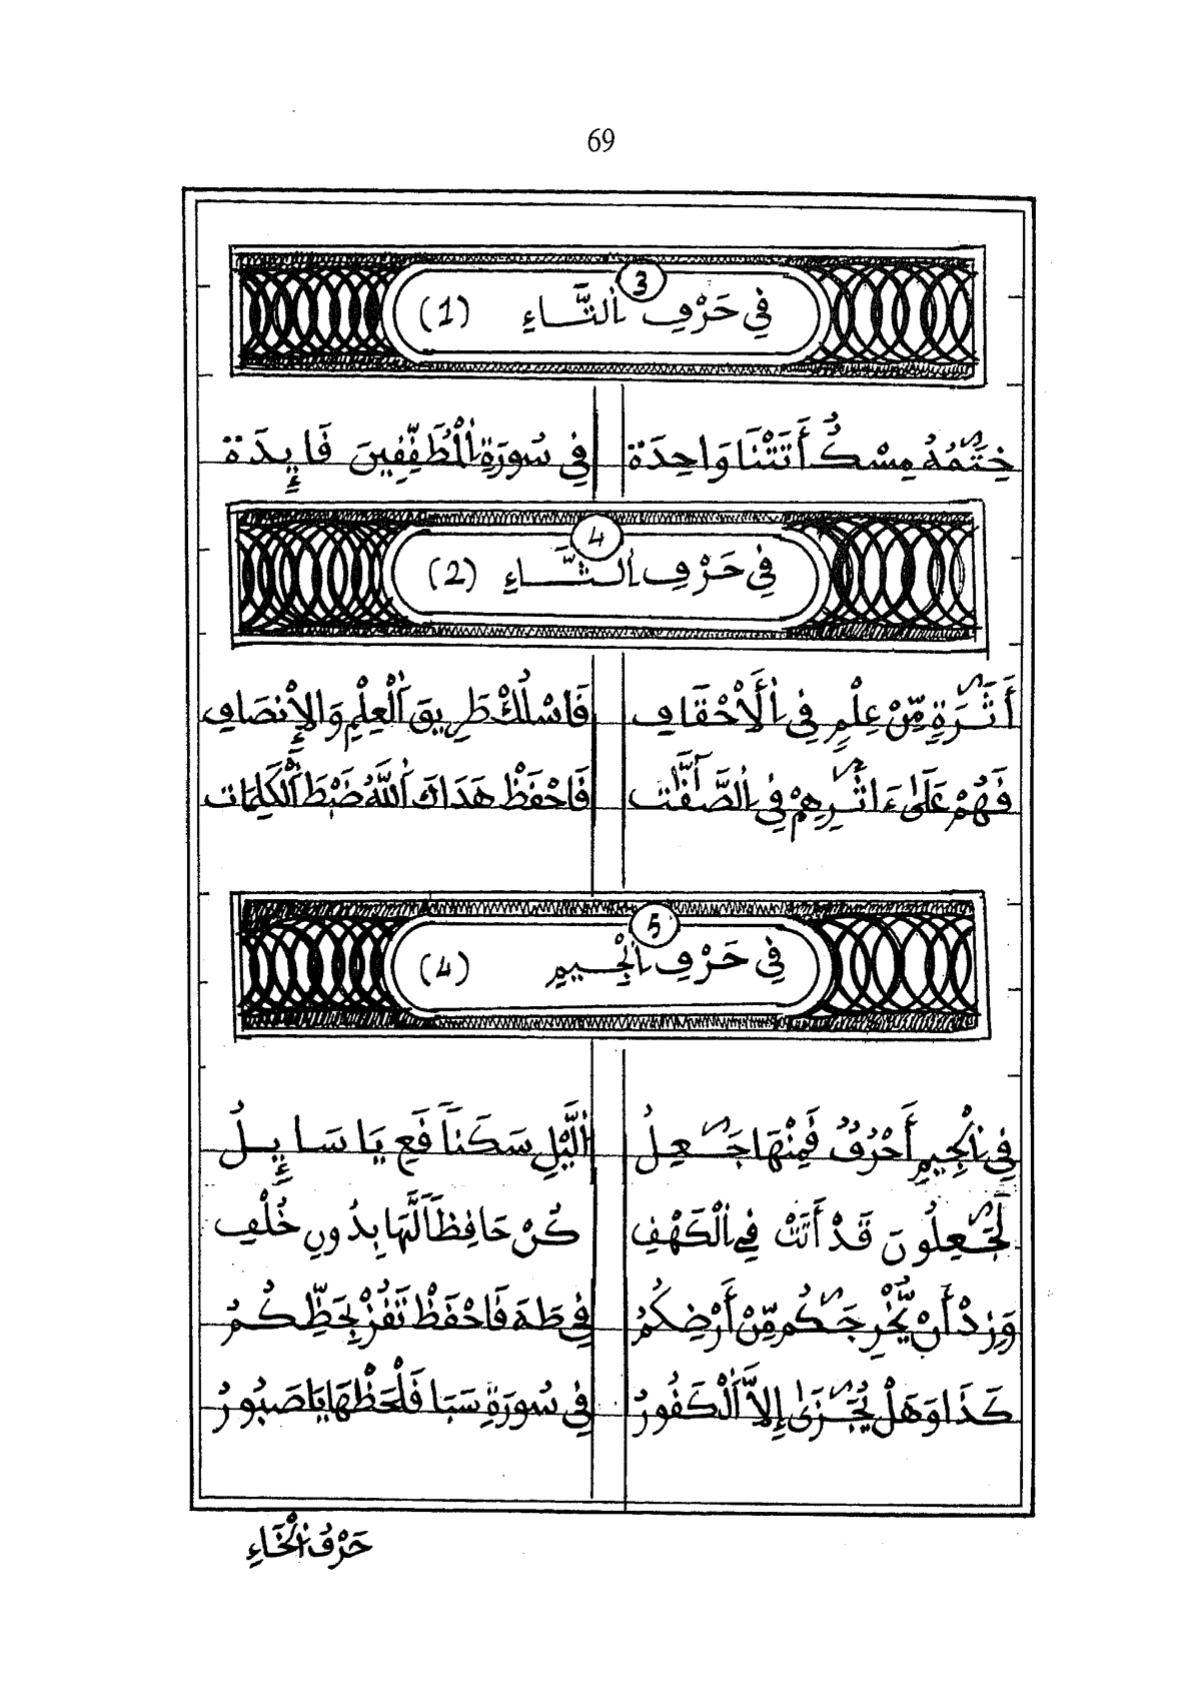 69
3
فِي حَرْفِ اٰلتَّـــاءِ (1)
خِتَٰمُهُ مِسْكٌ أَتَتْنَا وَاحِدَة فِي سُورَةِ اٰلْمُطَفِّفِينَ فَايِٕدَة
4
فِي حَرْفِ اٰلثَّـــاءِ (2)
أَثَٰرَةٍ مِّنْ عِلْمٍ فِي اٰلَأحْقَافِ فَاسْلُكْ طَرِيقَ اٰلْعِلْمِ وَالإِنْصَافِ
فَهُمْ عَلَىٰ ءَاثَٰرِهِمْ فِي اٰلصَّٰٓفَّٰت فَاحْفَظْ هَدَاكَ اٰللَّهُ ضَبْطَ اٰلْكَلِمَات
5
فِي حَرْفِ اٰلْجِـــيمِ (4)
فِي اٰلْجِيمِ أَحْرُفٌ فَمِنْهَا جَٰعِلُ اٰلَّيْلِ سَكَناً فَعِ يَا سَايِٕـلُ
لَجَٰعِلُونَ قَدْ أَتَتْ فِي اٰلْكَهْفِ كُنْ حَافِظاً لَّهَا بِدُونِ خُلْفِ
وَزِدْ أَنْ يُّخْرِجَٰكُم مِّنْ أَرْضِكُمُ فِي طَهَ فَاحْفَظْ تَفُزْ بِحَظِّكُمُ
كَذَا وَهَلْ يُجَٰزَىٰ إِلاَّ اٰلْكَفُورُ فِي سُورَةِ سَبَا فَلْحَظْهَا يَا صَبُورُ
حَرْفُ اٰلْخَاءِ